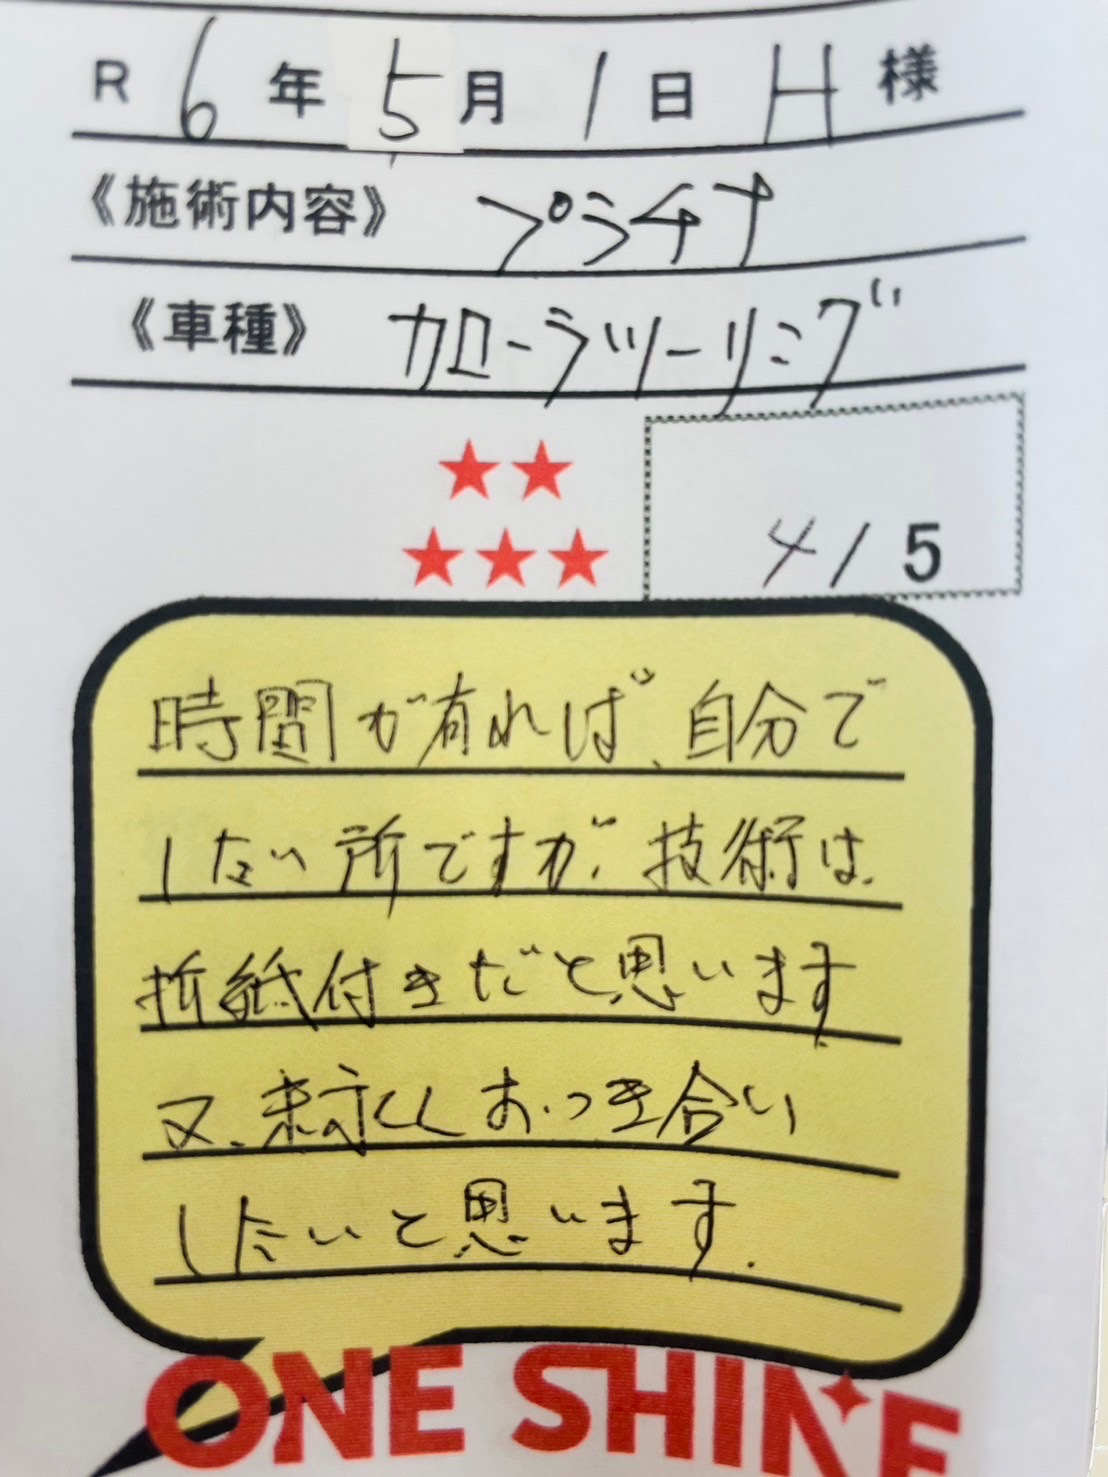 R 6 年 5 月 1 日 H 様
《施術内容》 プラチナ
《車種》 カローラツーリング
4/5
時間が有れば、自分で
したい所ですが、技術は、
折紙付きだと思います
又、末永くおつき合い
したいと思います.
ONE SHINE